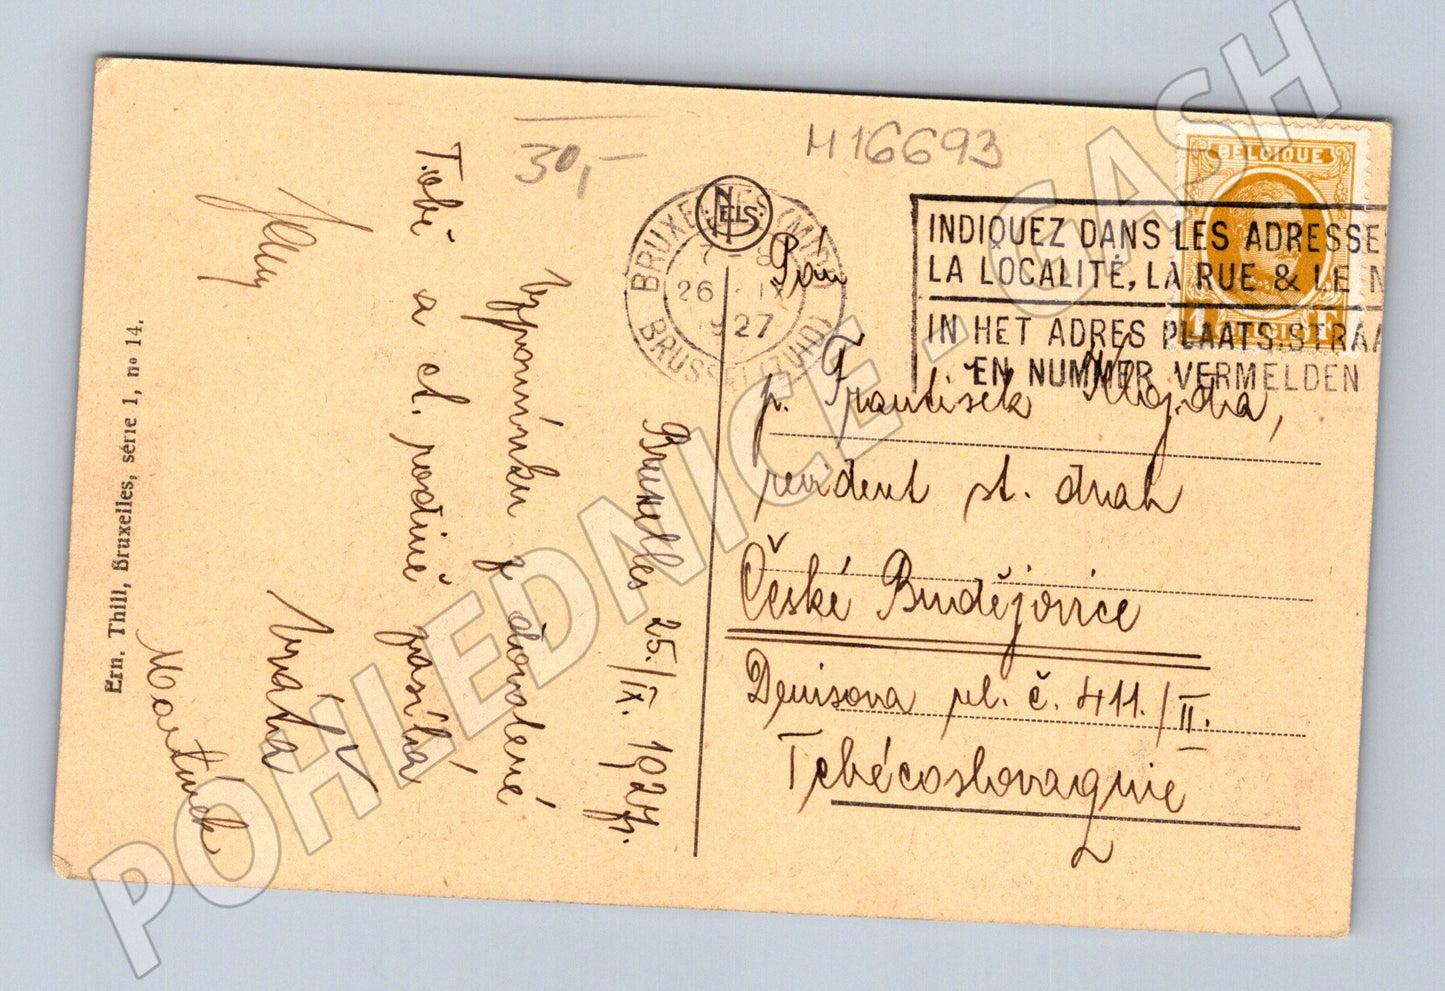 30,-
H16693
NELS
BRUXELLES (MIDI)
7-8
26 IX
1927
BRUSSEL (ZUID)
BELGIQUE
INDIQUEZ DANS LES ADRESSE
LA LOCALITÉ, LA RUE & LE N
IN HET ADRES PLAATS, STRAA
EN NUMMER VERMELDEN
Pán
p. František
revident st. drah
České Budějovice
Denisova ul. č. 411./II.
Tchécoslovaquie
Bruxelles 25./IX. 1927.
Vzpomínku z dovolené
Tobě a ct. rodině zasílá
Martínek
Ern. Thill, Bruxelles, série 1, nº 14.
POHLEDNICE - GASH